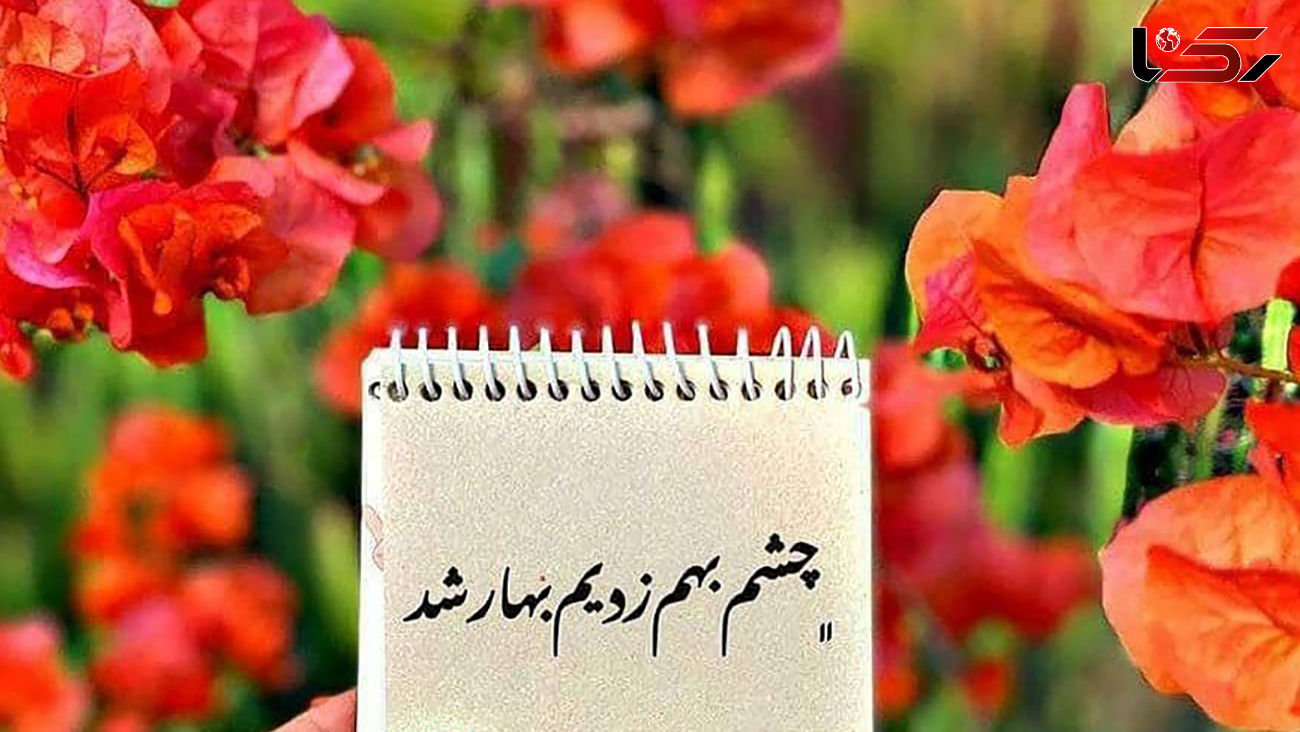 رکنا
چشم بهم زدیم بهار شد
"